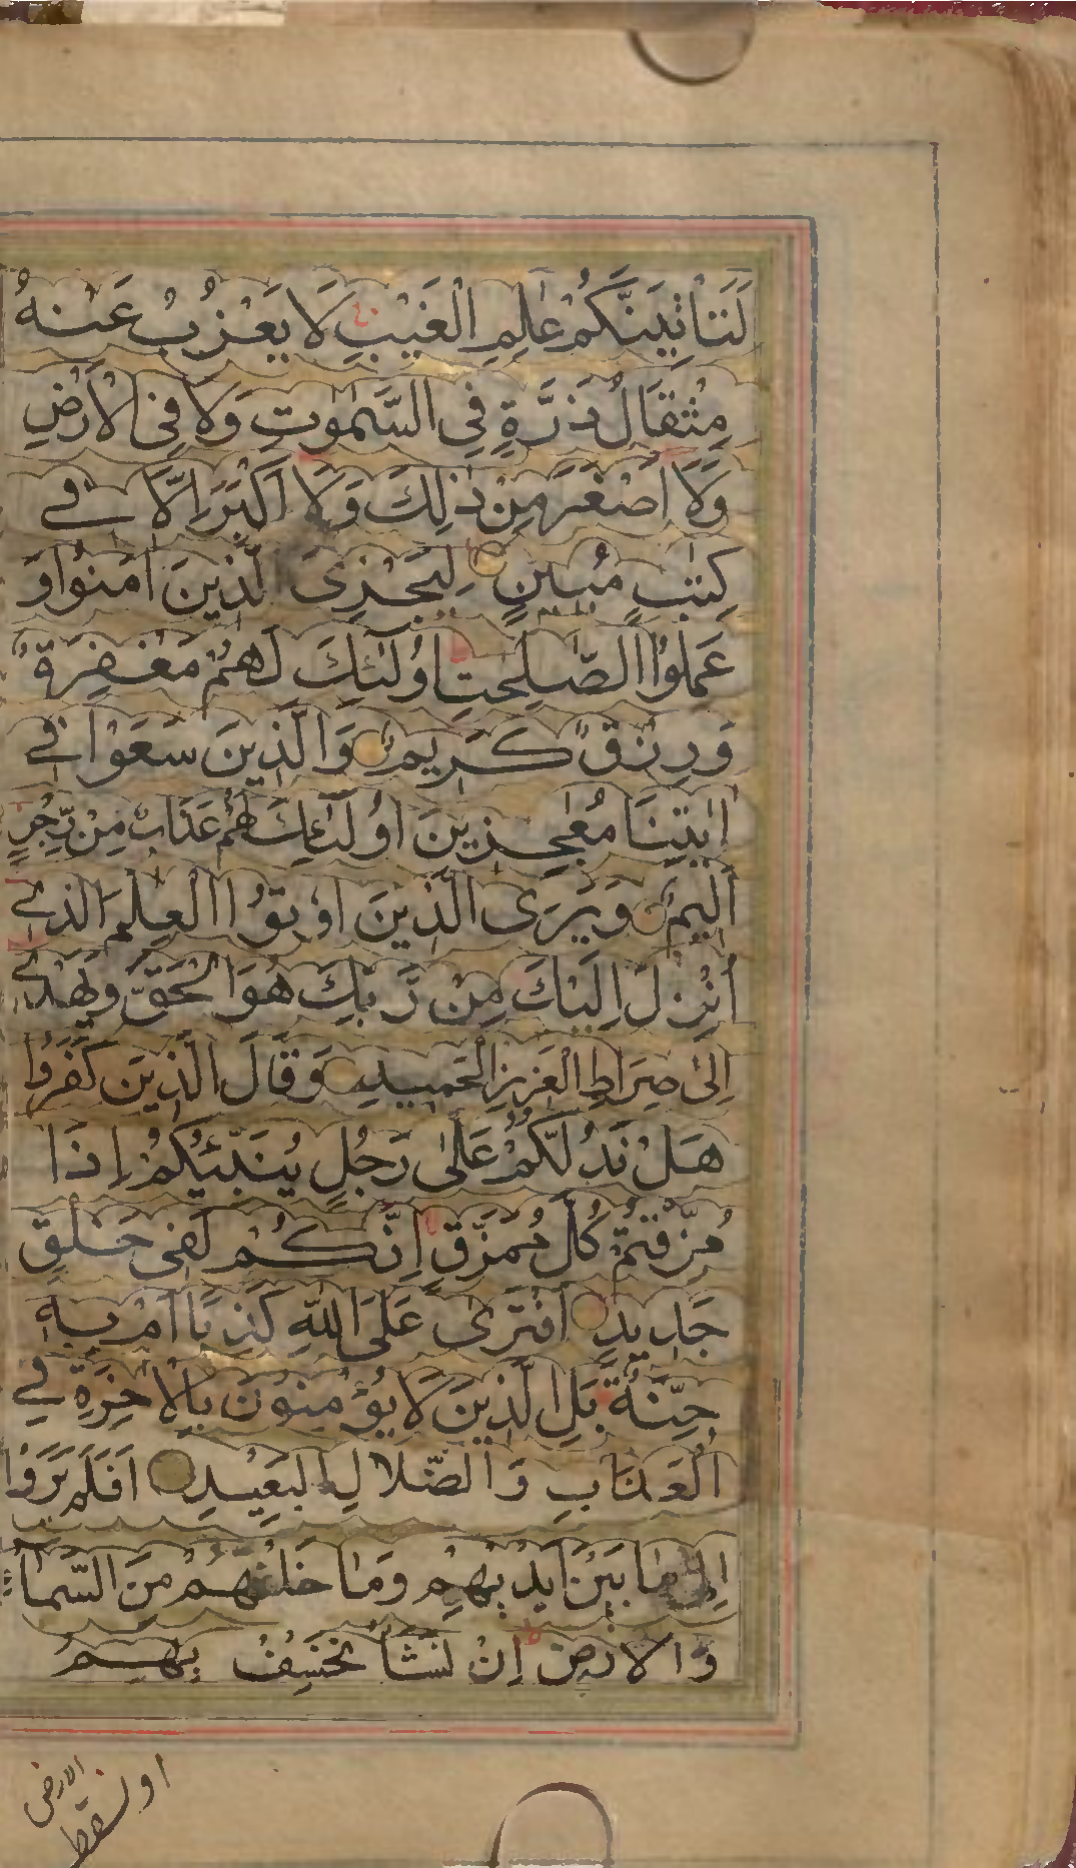 لَتَاْتِيَنَّكُمْ عٰلِمِ الْغَيْبِ لَا يَعْزُبُ عَنْهُ
مِثْقَالُ ذَرَّةٍ فِي السَّمٰوٰتِ وَلَا فِي الْاَرْضِ
وَلَا اَصْغَرُ مِنْ ذٰلِكَ وَلَا اَكْبَرُ اِلَّا فِي
كِتٰبٍ مُبِينٍ لِيَجْزِيَ الَّذِينَ اٰمَنُوا وَ
عَمِلُوا الصّٰلِحٰتِ اُولٰئِكَ لَهُمْ مَغْفِرَةٌ
وَرِزْقٌ كَرِيمٌ وَالَّذِينَ سَعَوْا فِي
اٰيٰتِنَا مُعٰجِزِينَ اُولٰئِكَ لَهُمْ عَذَابٌ مِنْ رِّجْزٍ
اَلِيمٌ وَيَرَى الَّذِينَ اُوتُوا الْعِلْمَ الَّذِي
اُنْزِلَ اِلَيْكَ مِنْ رَّبِّكَ هُوَ الْحَقَّ وَيَهْدِي
اِلٰى صِرَاطِ الْعَزِيزِ الْحَمِيدِ وَقَالَ الَّذِينَ كَفَرُوا
هَلْ نَدُلُّكُمْ عَلٰى رَجُلٍ يُنَبِّئُكُمْ اِذَا
مُزِّقْتُمْ كُلَّ مُمَزَّقٍ اِنَّكُمْ لَفِي خَلْقٍ
جَدِيدٍ اَفْتَرٰى عَلَى اللّٰهِ كَذِبًا اَمْ بِهِ
جِنَّةٌ بَلِ الَّذِينَ لَا يُؤْمِنُونَ بِالْاٰخِرَةِ فِي
الْعَذَابِ وَالضَّلَالِ الْبَعِيدِ اَفَلَمْ يَرَوْا
اِلٰى مَا بَيْنَ اَيْدِيهِمْ وَمَا خَلْفَهُمْ مِنَ السَّمَاءِ
وَالْاَرْضِ اِنْ نَشَأْ نَخْسِفْ بِهِمُ
الارض
او نسقط